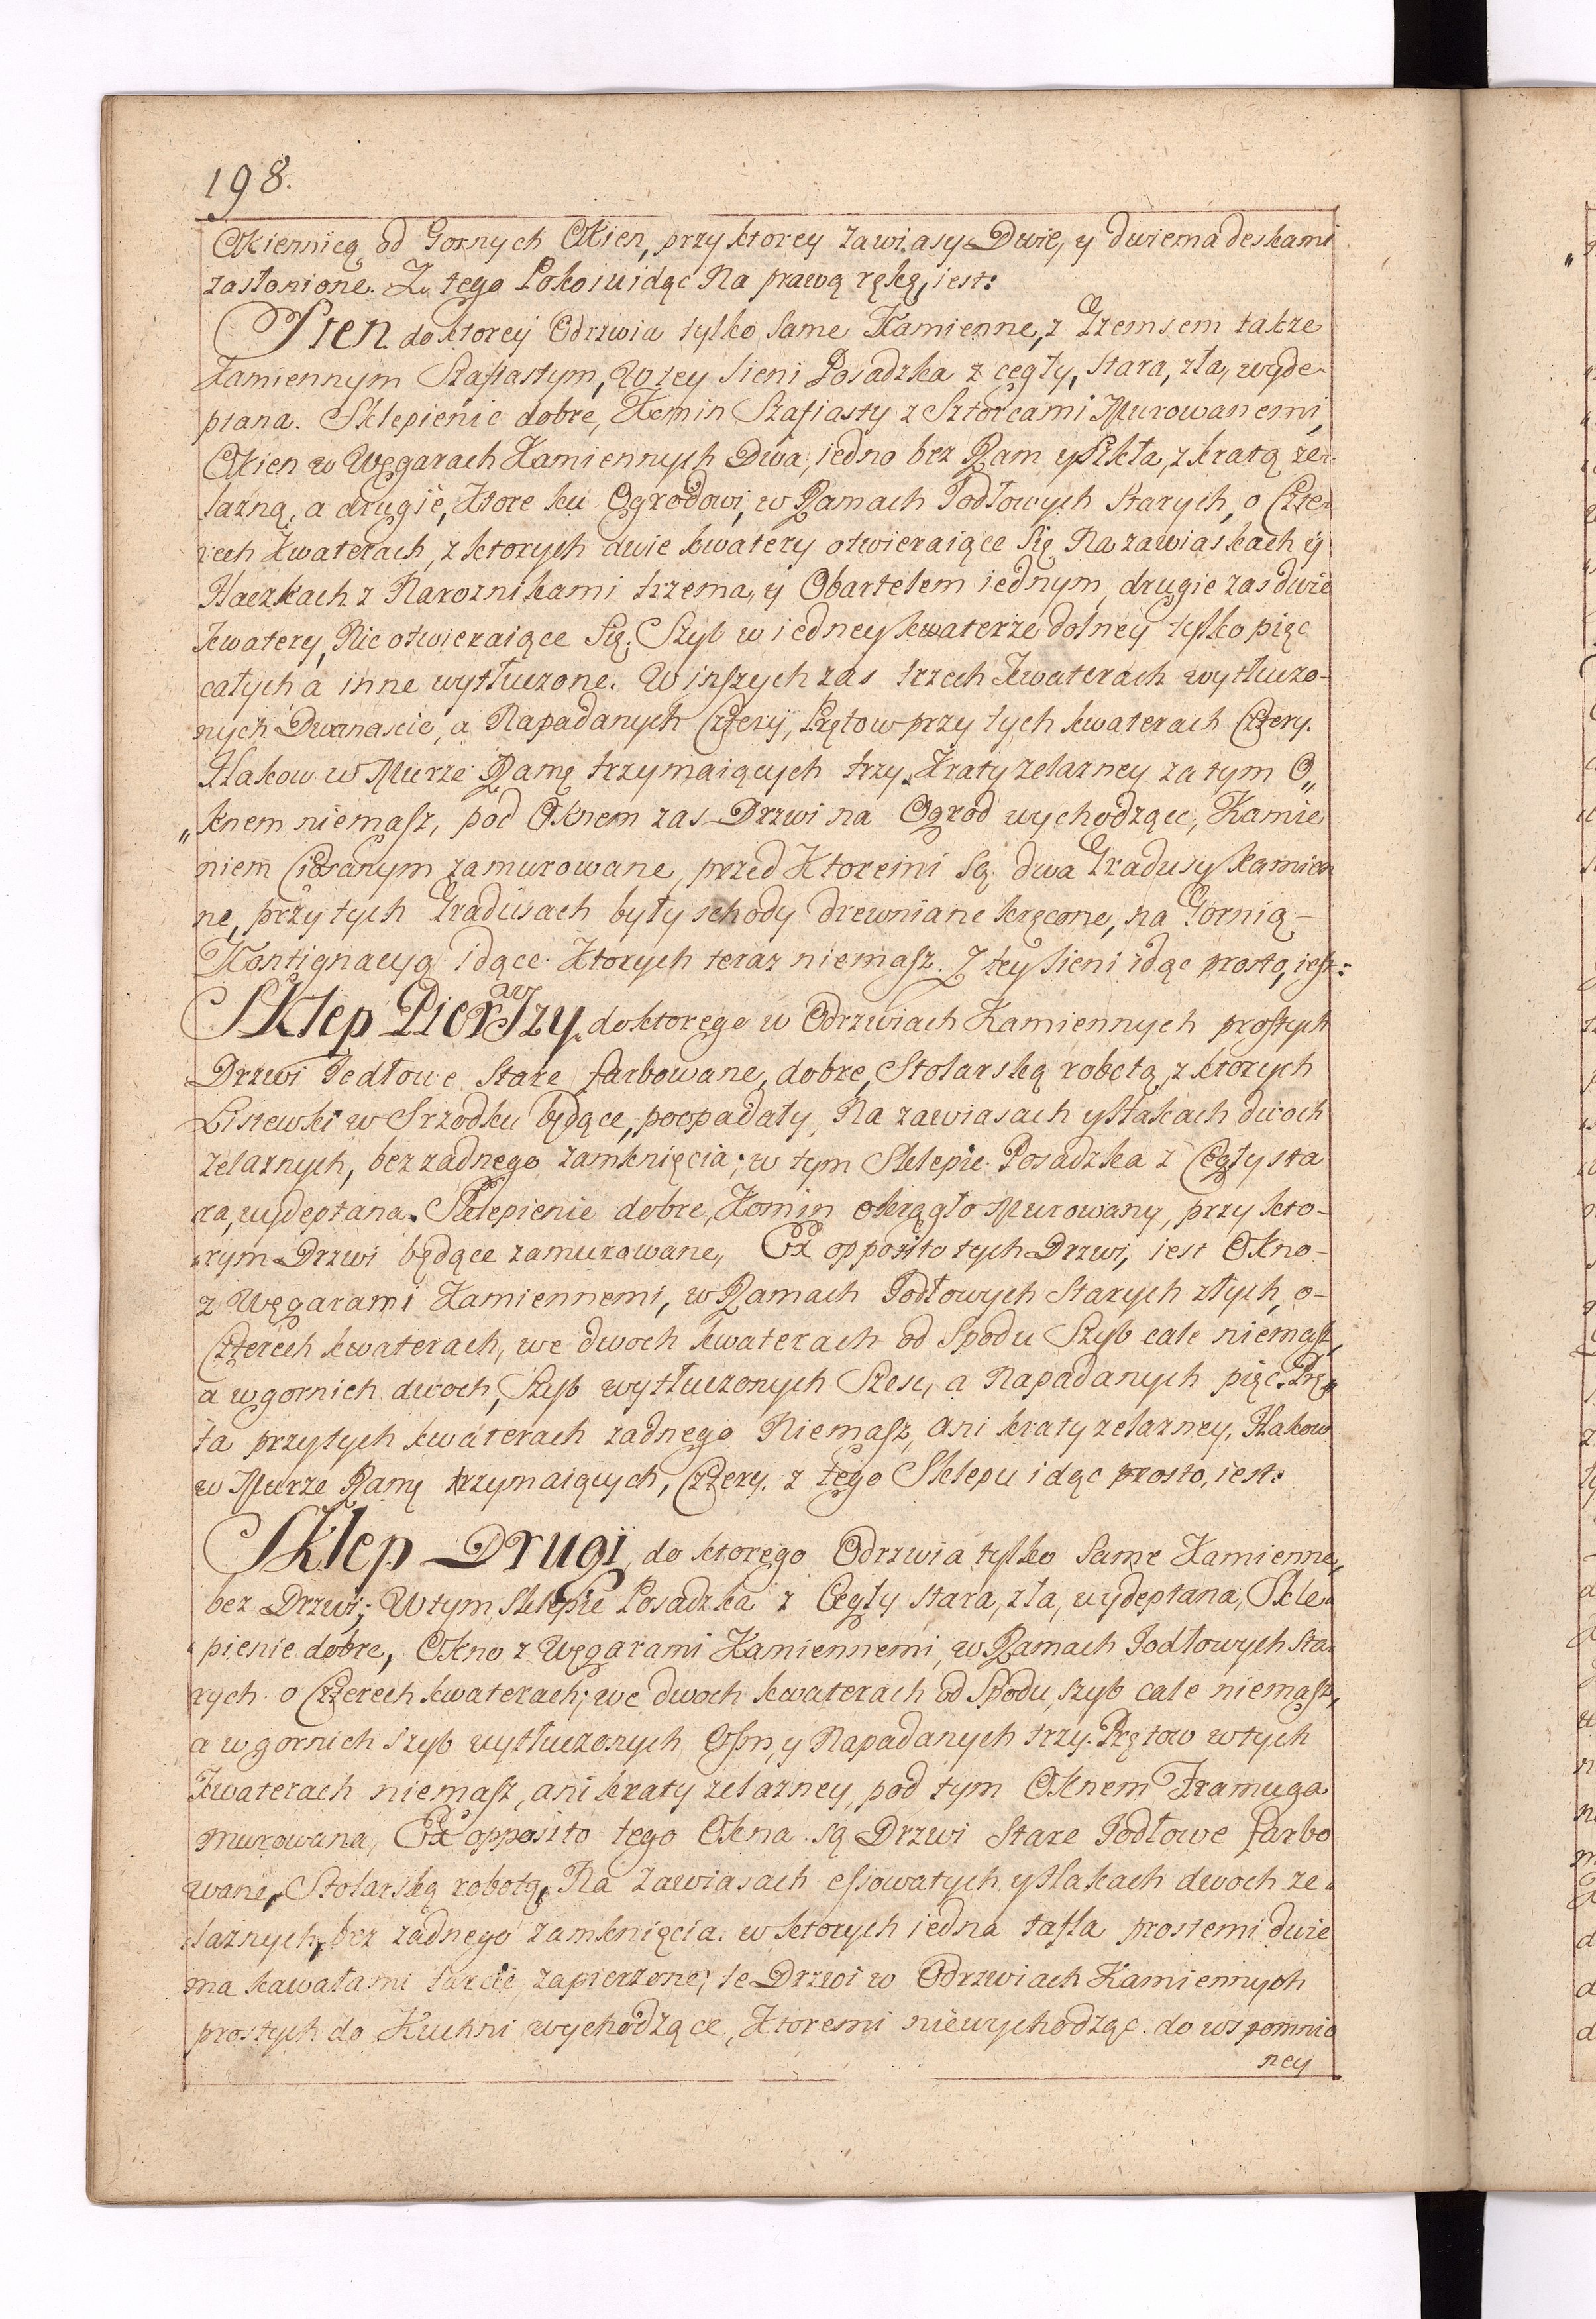 198.
Okiennicą od Gornych Okien, przy ktorey zawiasy Dwie, y dwiema deskami
zasłonione. Z tego Pokoiu idąc Na prawą rękę, iest:
Sien do ktorey Odrzwia tylko same Kamienne, z Gzemsem takze
Kamiennym Szafiastym, W tey Sieni Posadzka z cegły, stara, zła, wyde-
ptana. Sklepienie dobre, Komin Szafiasty z Sztorcami Murowanemi,
Okien w Węgarach Kamiennych Dwa, iedno bez Ram y Szkła, z kratą ze-
lazną, a drugie, Ktore ku Ogrodowi, w Ramach Jodłowych Starych, o Czte-
rech Kwaterach, z ktorych dwie kwatery otwieraiące Się Na zawiaskach y
Haczkach z Naroznikami trzema, y Obartelem iednym, drugie zas dwie
Kwatery, Nie otwieraiące Się. Szyb w iedney kwaterze dolney tylko pięc
całych a inne wytłuczone. W inszych zas trzech Kwaterach wytłuczo-
nych Dwanascie, a Napadanych Cztery, Prętow przy tych kwaterach Cztery.
Hakow w Murze Ramę trzymaiących trzy. Kraty zelazney za tym O„
„knem niemasz, pod Oknem zas Drzwi na Ogrod wychodzące, Kamie
niem Ciosanym zamurowane, przed Ktoremi Są dwa Gradusy kamien
ne, przy tych Gradusach były schody drewniane kręcone, na Gornią
Kontignacyą idące. Ktorych teraz niemasz. Z tey Sieni idąc prosto, iest:
Sklep Pierwszy. do ktorego w Odrzwiach Kamiennych prostych
Drzwi Jedłowe Stare farbowane, dobre, Stolarską robotą, z ktorych
Listewki w Srzodku będące, poopadały, Na zawiasach y Hakach dwoch
zelaznych, bez zadnego zamknięcia; w tym Sklepie Posadzka z Cegły sta
ra, wydeptana. Sklepienie dobre, Komin okrągło Murowany, przy kto-
„rym Drzwi będące zamurowane, Ex opposito tych Drzwi, iest Okno-
z Węgarami Kamiennemi, w Ramach Jodłowych Starych złych, o-
Czterech kwaterach, we dwoch kwaterach od Spodu Szyb cale niemasz,
a w gornich dwoch, Szyb wytłuczonych Szesc, a Napadanych pięc. Prę„
ta przy tych kwaterach zadnego Niemasz, ani kraty zelazney, Hakow
w Murze Ramę trzymaiących, Cztery. z tego Sklepu idąc prosto, iest:
Sklep Drugi, do ktorego Odrzwia tylko Same Kamienne,
bez Drzwi; W tym Sklepie Posadzka z Cegły stara, zła, wydeptana, Skle-
pienie dobre, Okno z Węgarami Kamiennemi, w Ramach Jodłowych Sta-
rych o Czterech kwaterach; we dwoch kwaterach od Spodu, szyb cale niemasz,
a w gornich szyb wytłuczonych Osm, y Napadanych trzy. Prętow w tych
Kwaterach niemasz, ani kraty zelazney, pod tym Oknem Framuga
murowana, Ex opposito tego Okna są Drzwi Stare Jodłowe farbo
wane, Stolarską robotą, Na zawiasach essowatych y Hakach dwoch ze-
laznych, bez zadnego zamknięcia. w ktorych iedna tafla prostemi dwie
ma kawałami tarcic zapierzone; te Drzwi w Odrzwiach Kamiennych
prostych do Kuchni wychodzące, Ktoremi niewychodząc do wspomnio
ney